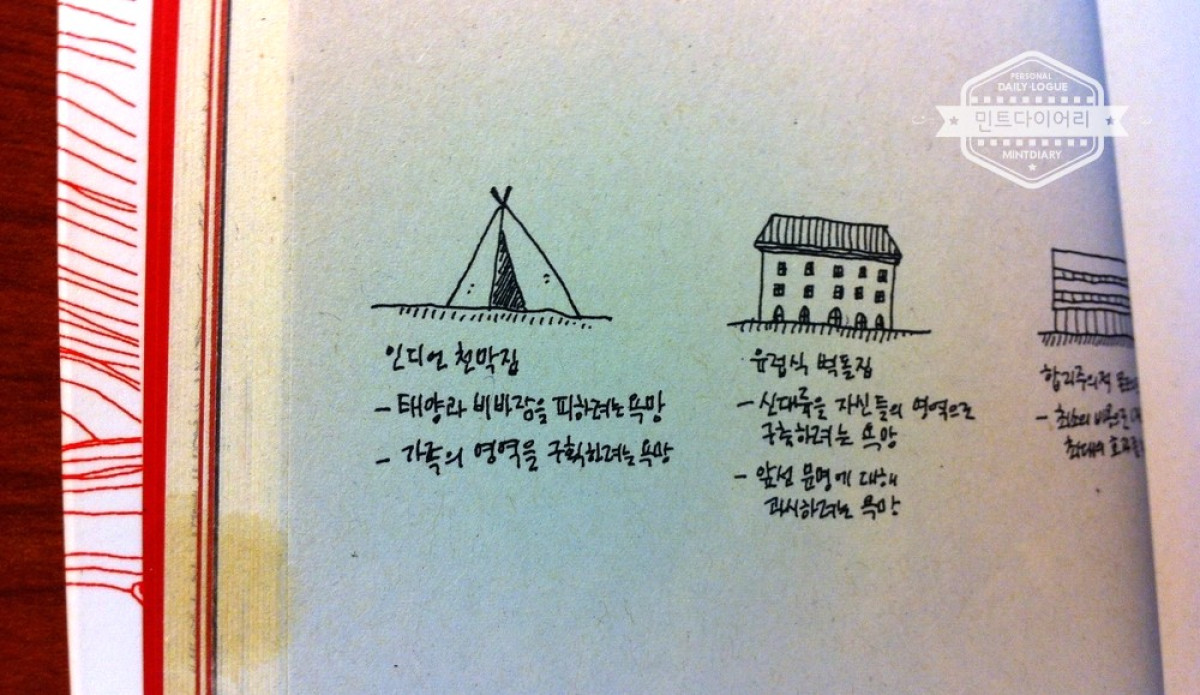 PERSONAL
DAILY·LOGUE
민트다이어리
MINTDIARY
인디언 천막집
- 태양과 비바람을 피하려는 욕망
- 가족의 영역을 구획하려는 욕망
유럽식 벽돌집
- 신대륙을 자신들의 영역으로
구축하려는 욕망
- 앞선 문명에 대해
과시하려는 욕망
합리주의적
- 최소의 비용으로
최대의 효과를